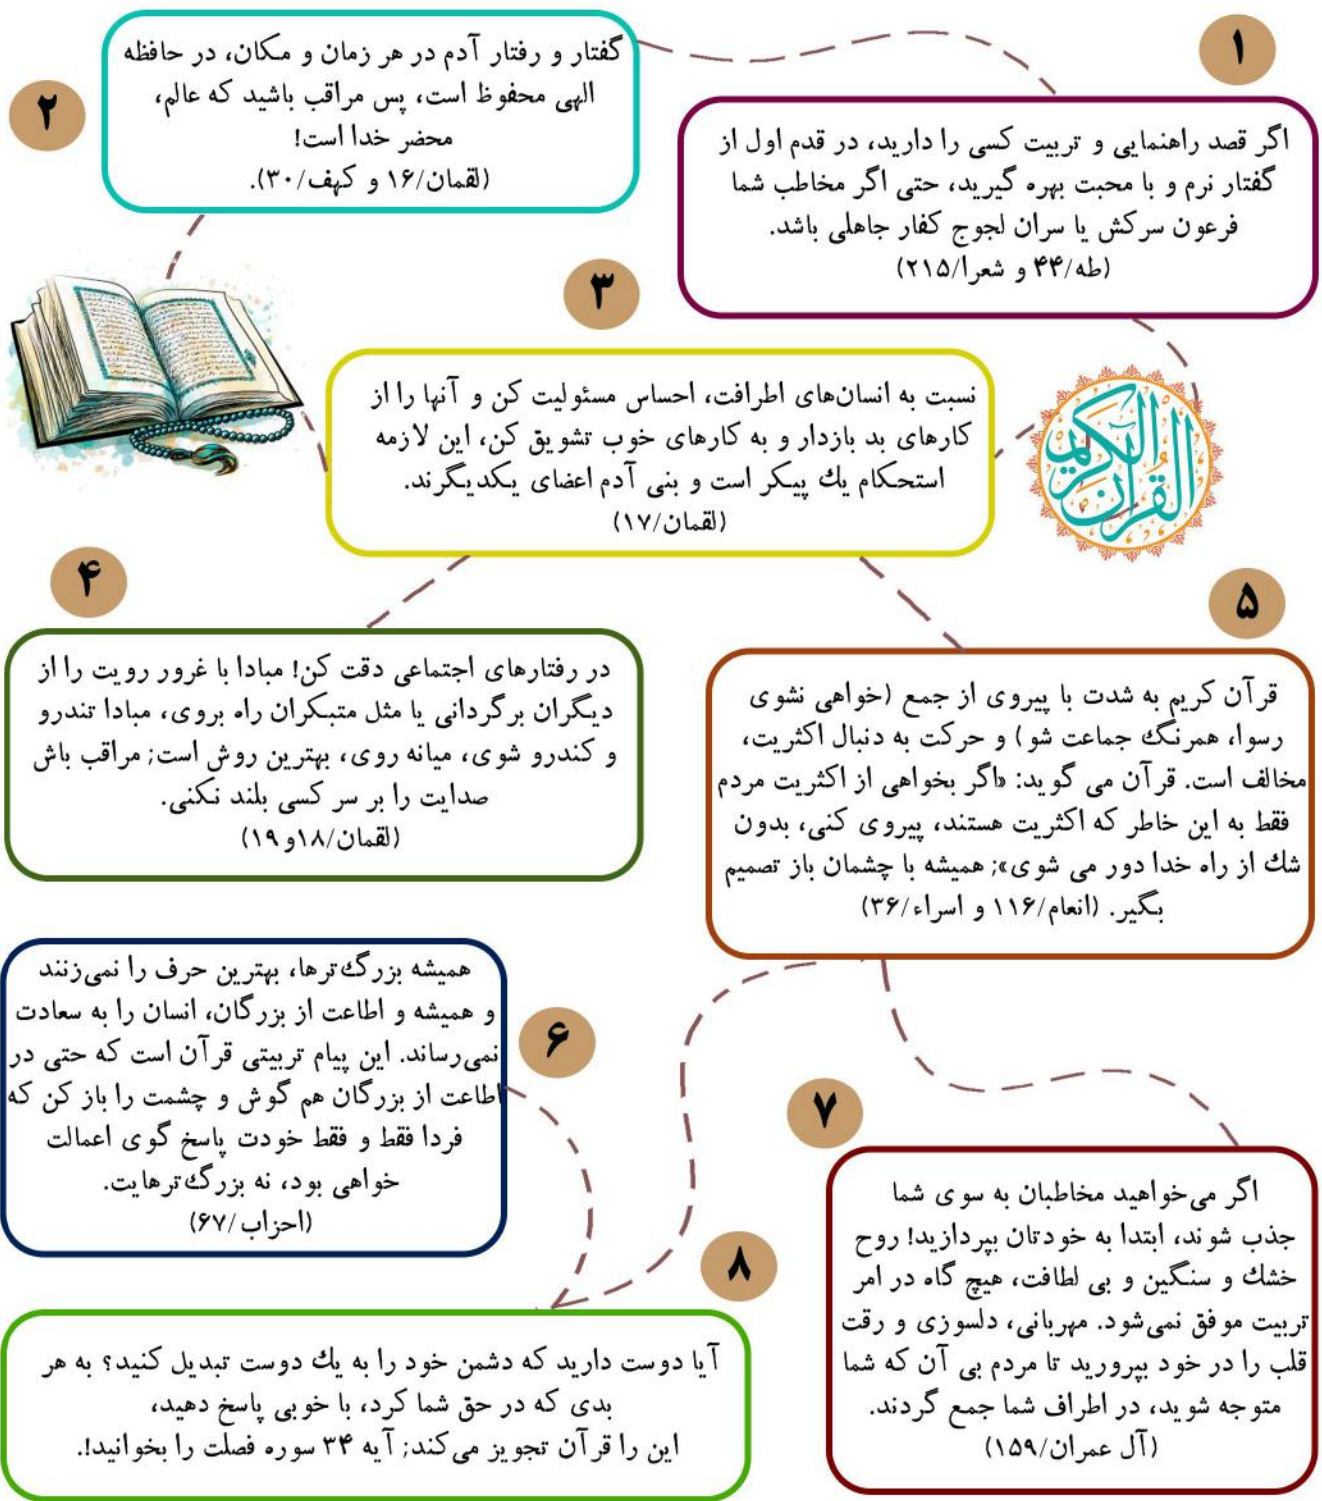 ۱
اگر قصد راهنمایی و تربیت کسی را دارید، در قدم اول از
گفتار نرم و با محبت بهره گیرید، حتی اگر مخاطب شما
فرعون سرکش یا سران لجوج کفار جاهلی باشد.
(طه/۴۴ و شعرا/۲۱۵)
۲
گفتار و رفتار آدم در هر زمان و مکان، در حافظه
الهی محفوظ است، پس مراقب باشید که عالم،
محضر خدا است!
(لقمان/۱۶ و کهف/۳۰).
۳
نسبت به انسان‌های اطرافت، احساس مسئولیت کن و آنها را از
کارهای بد بازدار و به کارهای خوب تشویق کن، این لازمه
استحکام یك پیکر است و بنی آدم اعضای یکدیگرند.
(لقمان/۱۷)
القرآن الكريم
۴
در رفتارهای اجتماعی دقت کن! مبادا با غرور رویت را از
دیگران برگردانی یا مثل متبکران راه بروی، مبادا تندرو
و کندرو شوی، میانه روی، بهترین روش است; مراقب باش
صدایت را بر سر کسی بلند نکنی.
(لقمان/۱۸و ۱۹)
۵
قرآن کریم به شدت با پیروی از جمع (خواهی نشوی
رسوا، همرنگ جماعت شو) و حرکت به دنبال اکثریت،
مخالف است. قرآن می گوید: «اگر بخواهی از اکثریت مردم
فقط به این خاطر که اکثریت هستند، پیروی کنی، بدون
شك از راه خدا دور می شوی»; همیشه با چشمان باز تصمیم
بگیر. (انعام/۱۱۶ و اسراء/۳۶)
۶
همیشه بزرگ‌ترها، بهترین حرف را نمی‌زنند
و همیشه و اطاعت از بزرگان، انسان را به سعادت
نمی‌رساند. این پیام تربیتی قرآن است که حتی در
اطاعت از بزرگان هم گوش و چشمت را باز کن که
فردا فقط و فقط خودت پاسخ گوی اعمالت
خواهی بود، نه بزرگ‌ترهایت.
(احزاب/۶۷)
۷
اگر می‌خواهید مخاطبان به سوی شما
جذب شوند، ابتدا به خودتان بپردازید! روح
خشك و سنگین و بی لطافت، هیچ گاه در امر
تربیت موفق نمی‌شود. مهربانی، دلسوزی و رقت
قلب را در خود بپرورید تا مردم بی آن که شما
متوجه شوید، در اطراف شما جمع گردند.
(آل عمران/۱۵۹)
۸
آیا دوست دارید که دشمن خود را به یك دوست تبدیل کنید؟ به هر
بدی که در حق شما کرد، با خوبی پاسخ دهید،
این را قرآن تجویز می‌کند; آیه ۳۴ سوره فصلت را بخوانید!.